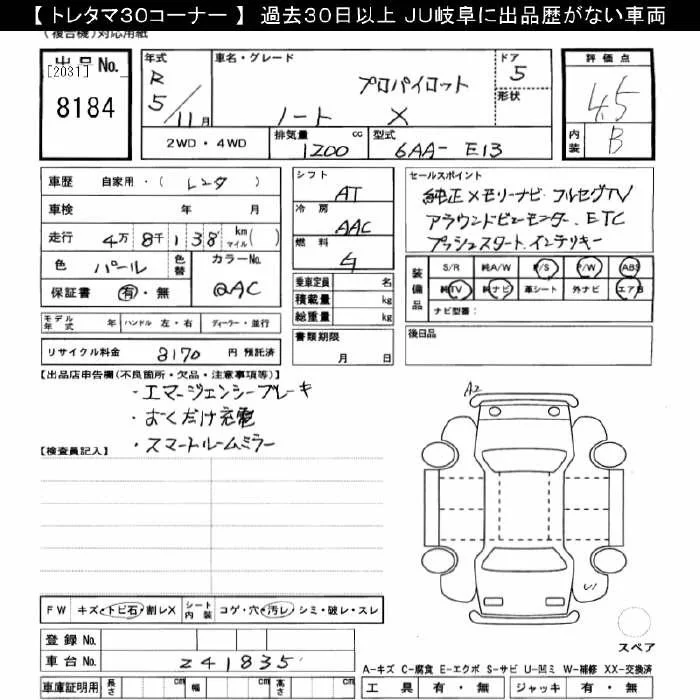 【 トレタマ30コーナー 】 過去30日以上 JU岐阜に出品歴がない車両
(複合機)対応用紙
出品No. [2031] 8184
年式 R5/11月
車名・グレード プロパイロット ノート X
ドア 5
形状
評価点 4.5
内装 B
2WD・4WD
排気量 1200 cc
型式 6AA- E13
車歴 自家用・( レンタ )
車検 年 月
走行 4万8千138 km マイル( )
色 パール 色替 カラーNo. QAC
保証書 有・無
シフト AT
冷房 AAC
燃料 4
乗車定員 名
積載量 kg
総重量 kg
セールスポイント
純正メモリーナビ フルセグTV
アラウンドビューモニター ETC
プッシュスタート.インテリキー
装備品 S/R 純A/W P/S P/W ABS
純TV 純ナビ 革シート 外ナビ エアB
ナビ型番:
モデル年式 年 ハンドル 左・右 ディーラー・並行
リサイクル料金 8170 円 預託済
書類期限 月 日
後日品
【出品店申告欄(不良箇所・欠品・注意事項等)】
・エマージェンシーブレーキ
・おくだけ充電
・スマートルームミラー
【検査員記入】
A2
U1
FW キズ・トビ石・割レX シート内装 コゲ・穴・汚レ・シミ・破レ・スレ
スペア
登録No.
車台No. 241835
A-キズ C-腐食 E-エクボ S-サビ U-凹ミ W-補修 XX-交換済
車庫証明用 長さ cm 幅 cm 高さ cm
工具 有・無 ジャッキ 有・無